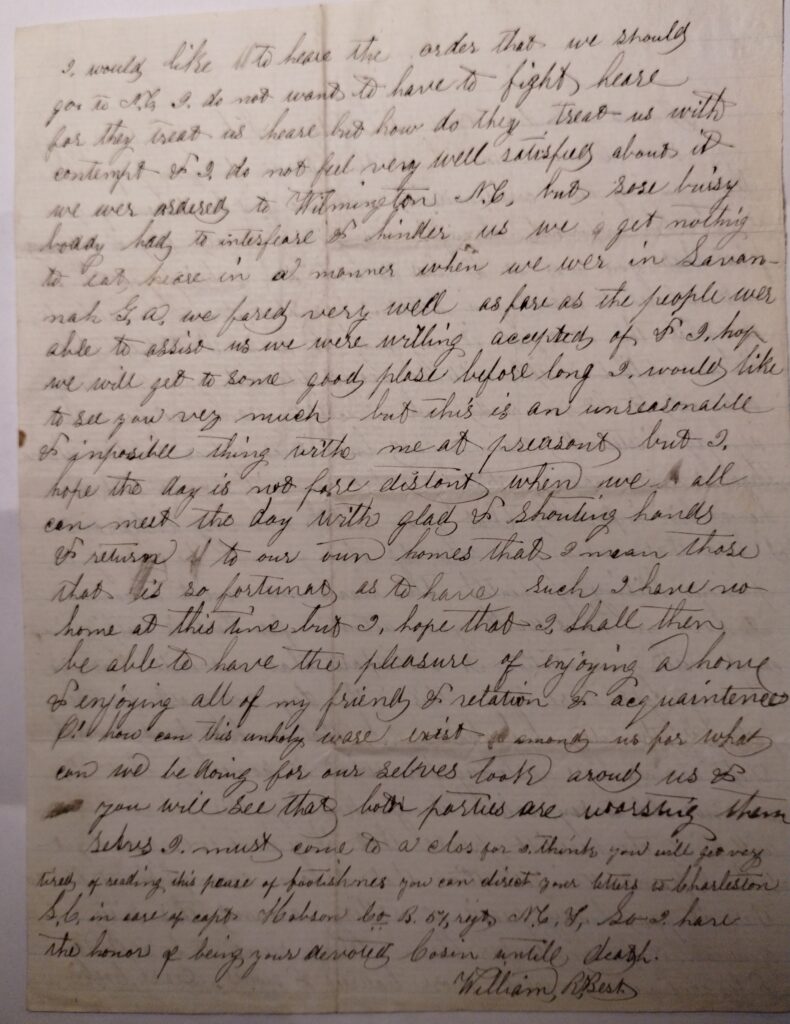 I. would like to heare the order that we should
go to N.C. I. do not want to have to fight heare
for they treat us heare but how do they treat us with
contempt & I. do not feel very well satisfied about it
we wer ordered to Wilmington N.C, but sose buisy
boddy had to interfeare & hinder us we get nothig
to eat heare in a manner when we wer in Savan-
nah G, A, we fared very well as fare as the people wer
able to assist us we were willing accepted of & I. hop
we will get to some good plase before long I. would like
to see you very much but this is an unreasonable
& imposible thing withe me at preasant but I.
hope the day is not fare distant when we all
can meet the day with glad & shouting hands
& return to our own homes that I mean those
that is so fortunat as to have such I have no
home at this time but I. hope that I, shall then
be able to have the pleasure of enjoying a home
& enjoying all of my friend & relation & acquaintence
O! how can this unholy ware exist amond us for what
can we be doing for our selves look aroud us &
you will see that both parties are worsting them
selves I. must come to a clos for I think you will get very
tired of reading this pease of foolishnes you can direct your letters to Charleston
S,C, in care of capt Hobson Co B. 51, regt N.C, T, So I. have
the honor of being your devoted Cosin untill death.
William, R, Best